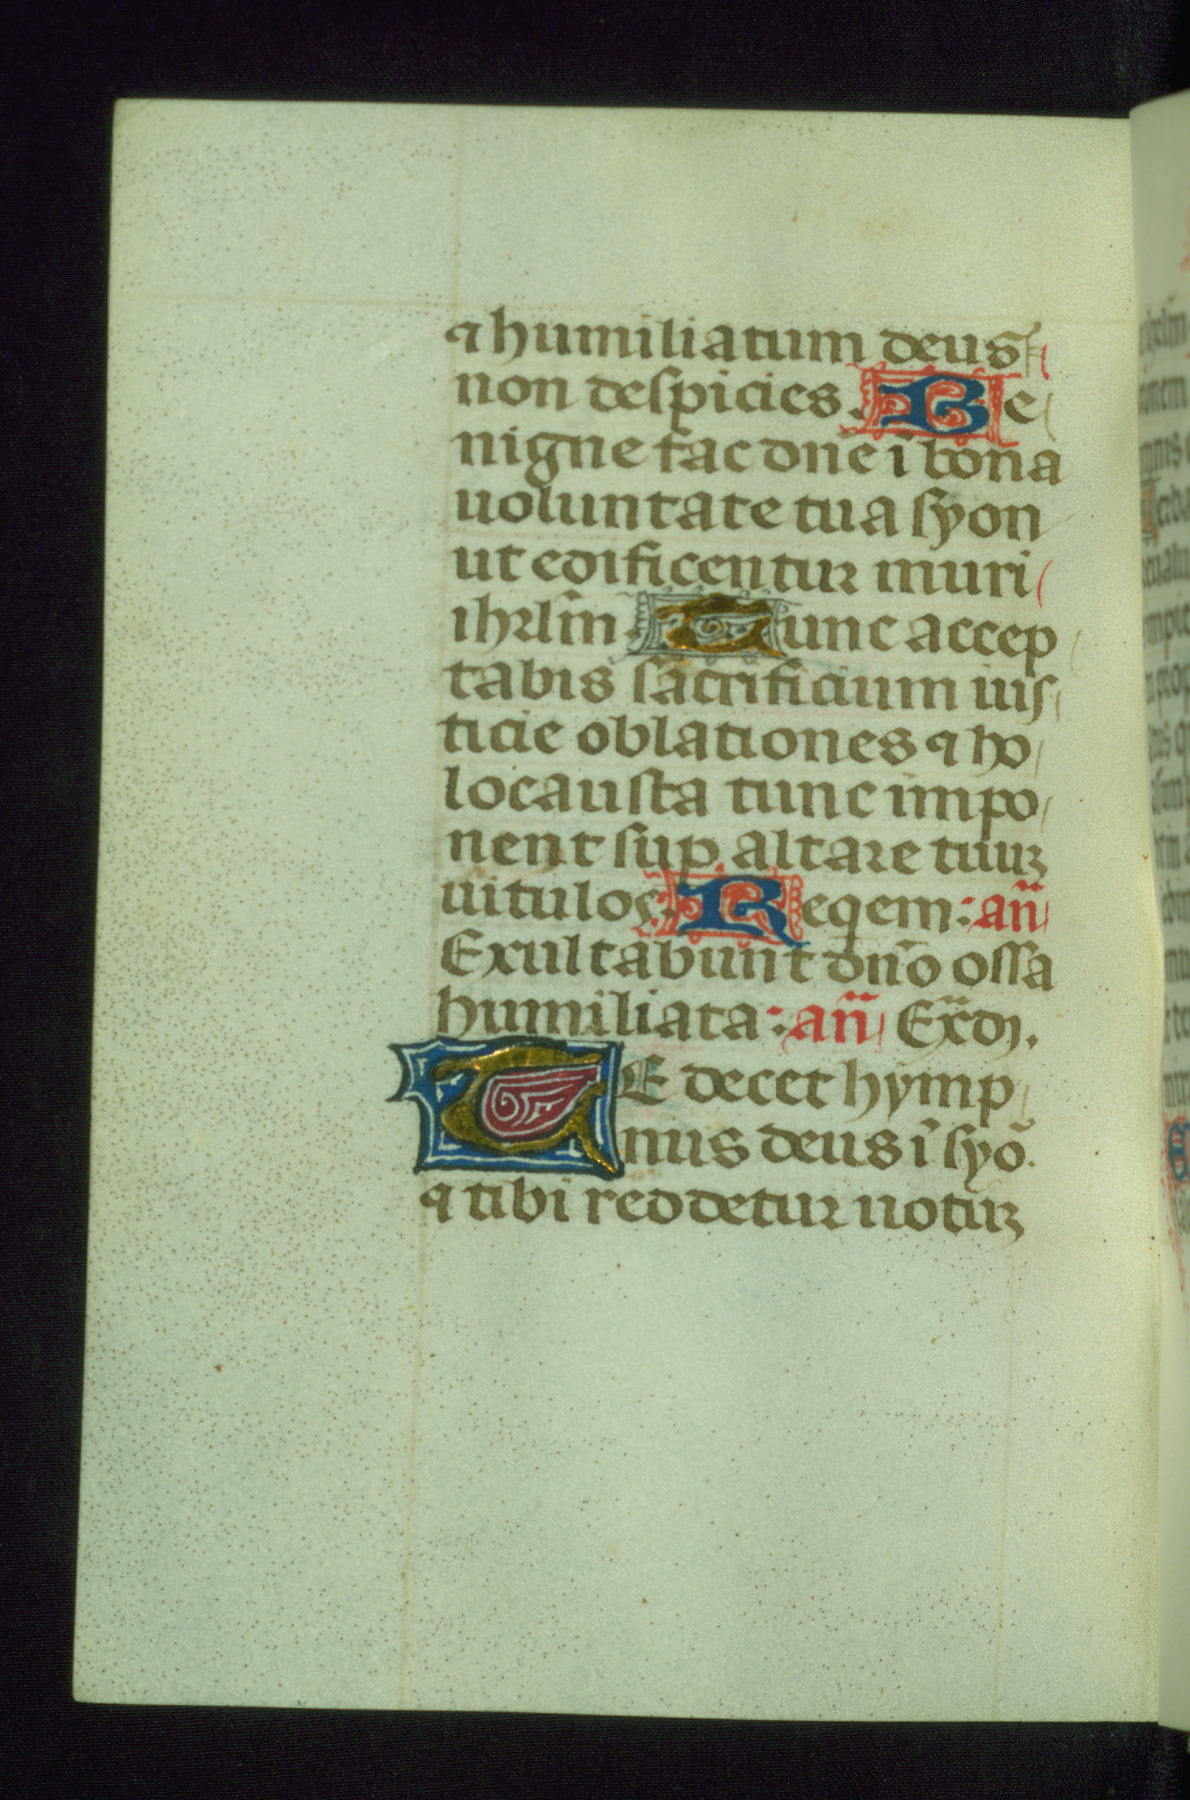 ⁊ humiliatum deus
non despicies. Be
nigne fac dn̄e ī bona
uoluntate tua syon
ut edificentur muri
ihrl̄m. Tunc accep
tabis sacrificium ius
ticie oblationes ⁊ ho
locausta tunc impo
nent sup altare tuuʒ
uitulos. Reqem: an̄
Exultabunt dn̄o ossa
humiliata: an̄ Exdi.
TE decet hymp
nus deus ī syō.
⁊ tibi reddetur uotuʒ